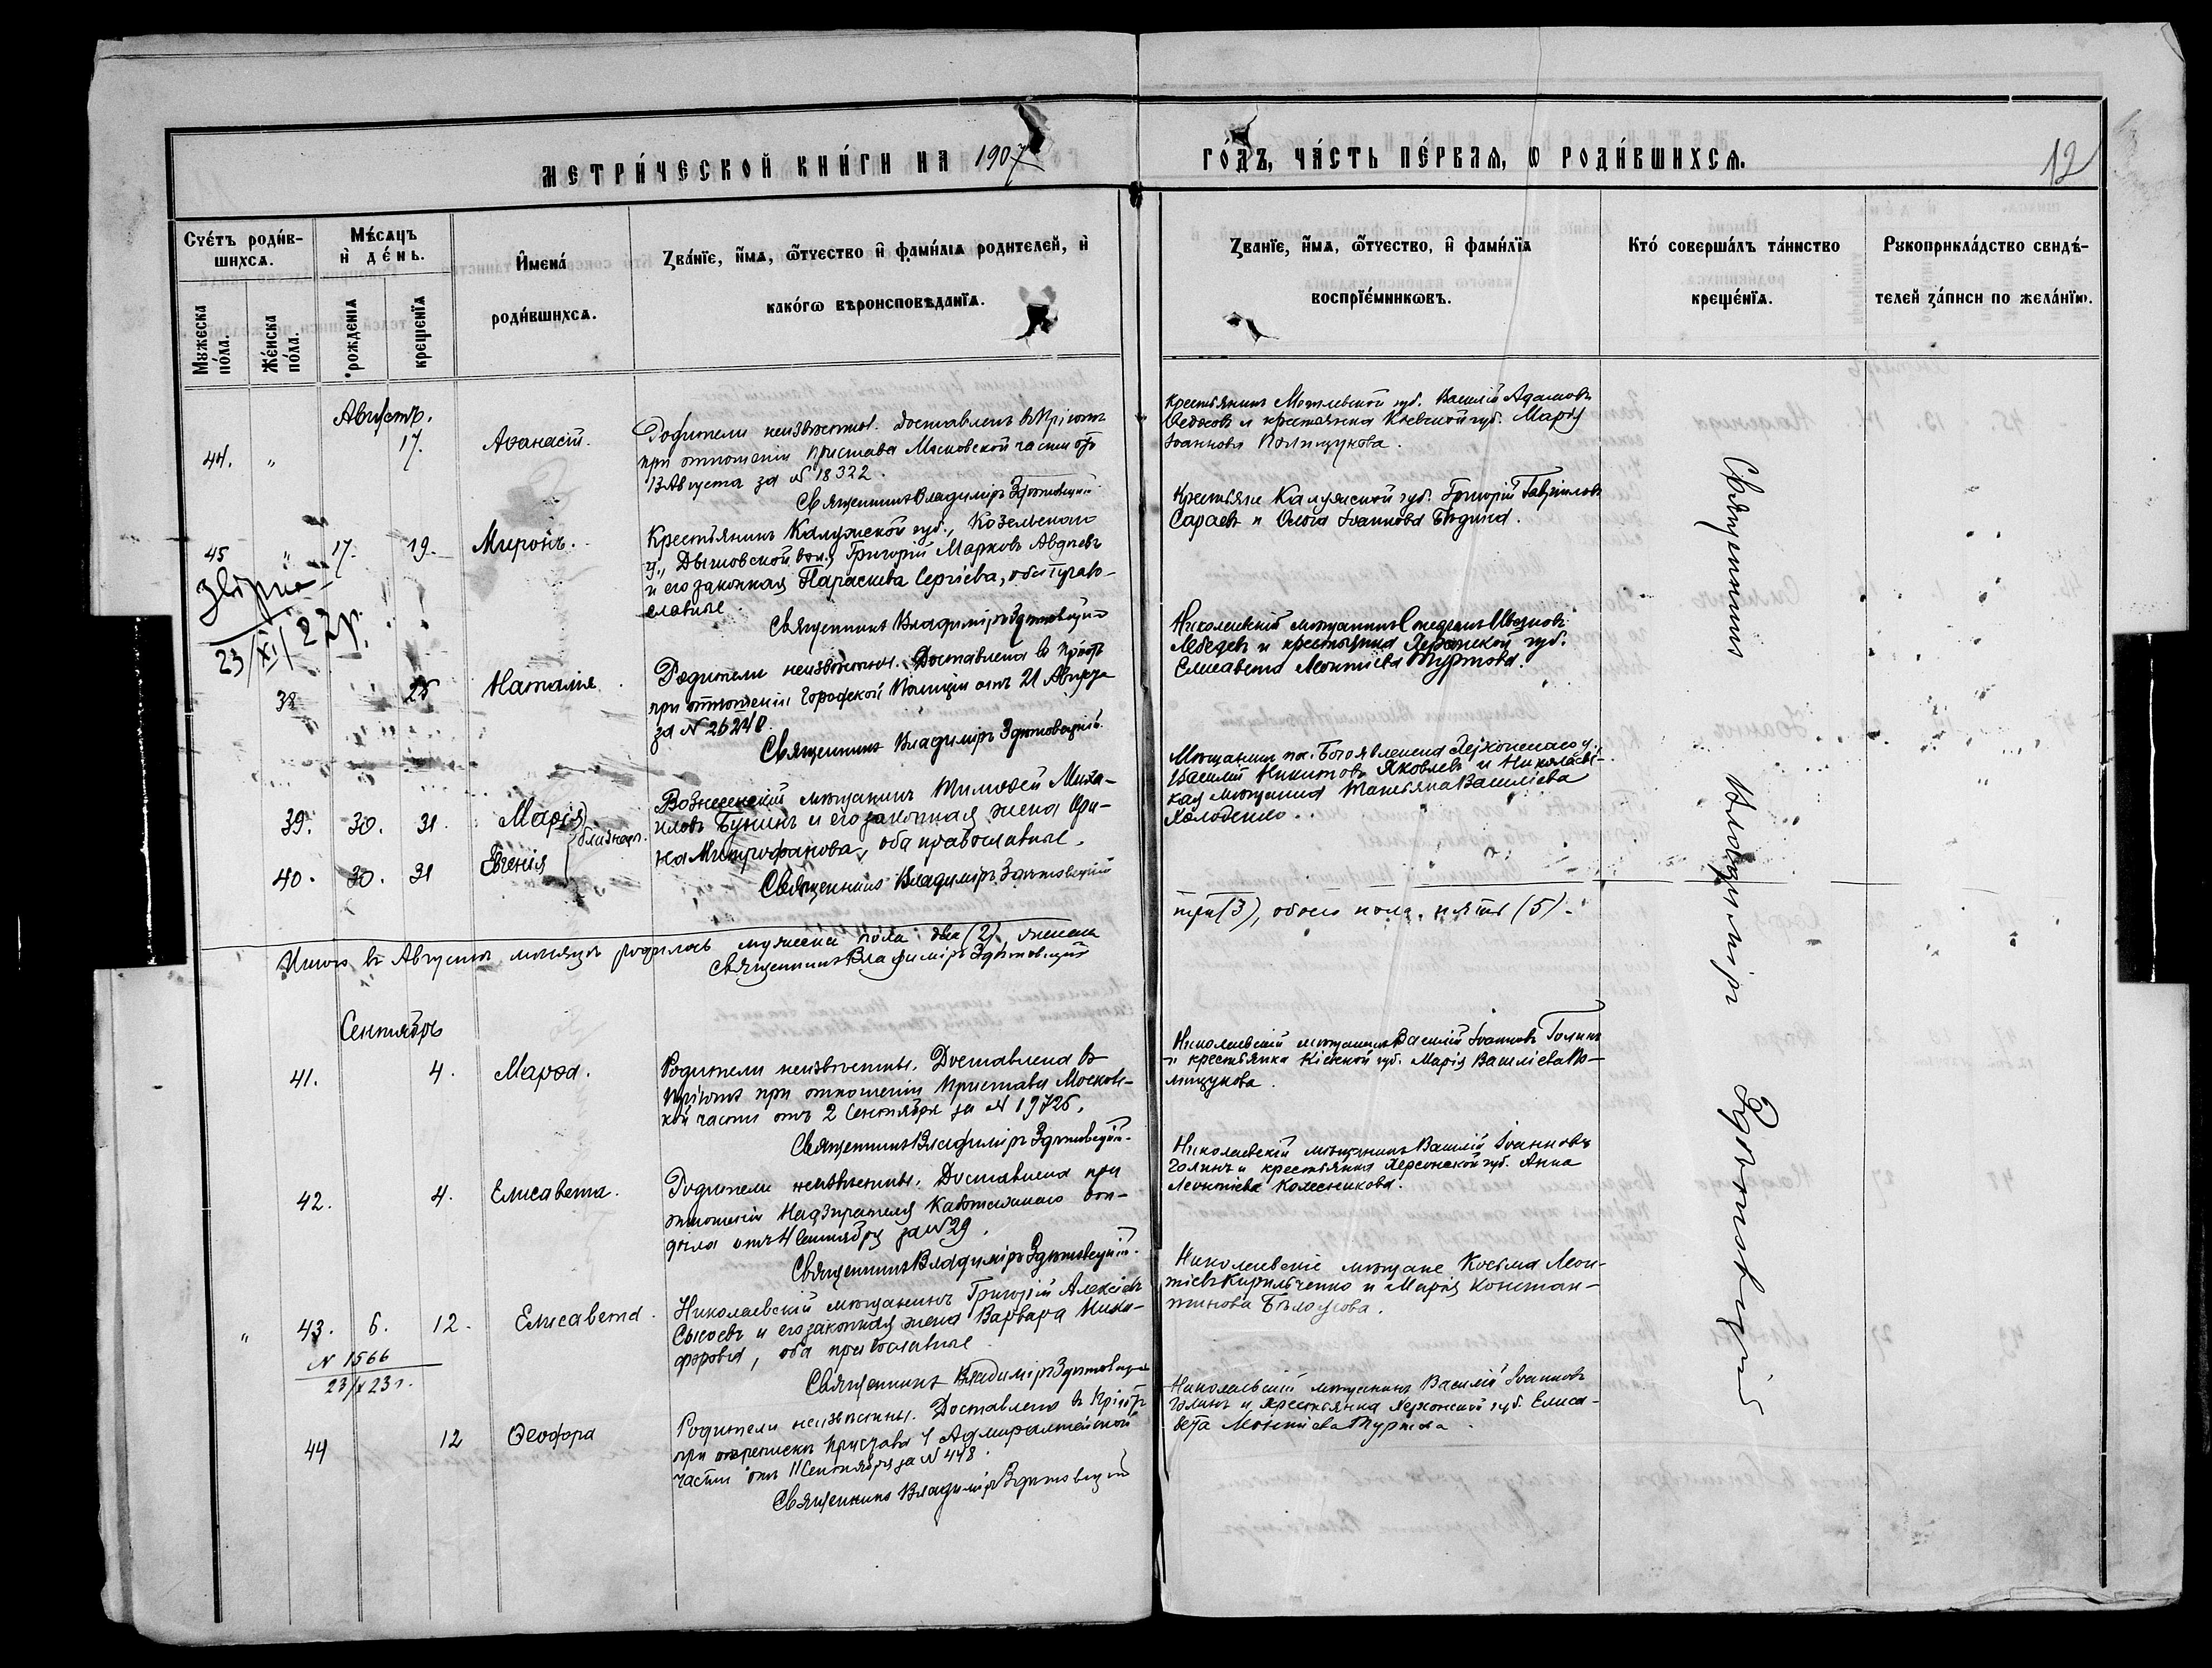 МЕТРИ́ЧЕСКОЙ КНИ́ГИ НА 1907
ГО́ДЪ, ЧА́СТЬ ПЕ́РВАѦ, Ѡ РОДИ́ВШИХСѦ.
12
Счéтъ роди́в-
шихсѧ.
Мужеска
пóла.
Жéнска
пóла.
Мѣ́сѧцъ
и҆ дéнь.
рожденїѧ
крещенїѧ
И҆мена́
роди́вшихсѧ.
Зва́нїе, и҆́мѧ, ѻ҆́тчество и҆ фами́лїѧ родителей, и҆
како́гѡ вѣроисповѣданїѧ.
Званїе, и҆́мѧ, ѻ҆́тчество, и҆ фами́лїѧ
воспрїе́мникѡвъ.
Кто́ соверша́лъ та́инство
креще́нїѧ.
Рукоприкла́дство свидѣ́-
телей за́писи по жела́нїю.
Августъ.
44. " 17. Аѳанасій.
Родители неизвѣстны. Доставленъ въ Пріютъ
при отношеніи Пристава Московской части отъ
13 Августа за № 18322.
Священникъ Владиміръ
Крестьянинъ Могилевской губ. Василій Адамовъ
и крестьянка Кіевской губ. Марія
Іоаннова Полищукова.
45 " 17. 19. Миронъ.
23/XI 22 р.
Крестьянинъ Калужской губ., Козельскаго
у., Дышовской вол., Григорій Марковъ Авдѣевъ
и его законная Параскева Сергіева, оба право-
славные.
Священникъ Владиміръ
Крестьяне Калужской губ. Григорій Гавріиловъ
Сараевъ и Ольга Іоаннова Бѣдина.
38 25 Наталія.
Родители неизвѣстны. Доставлена въ Пріютъ
при отношеніи Городской Полиціи отъ 21 Августа
за № 26248.
Священникъ Владиміръ
Николаевскій мѣщанинъ Ивановъ
Лебедевъ и крестьянка Херсонской губ.
Елисавета Леонтіева Туртова.
39. 30. 31. Марія
40. 30. 31 Евгенія
близнец.
Вознесенскій мѣщанинъ Тимоѳей Миха-
иловъ Бунинъ и его законная жена Ири-
на Митрофанова, оба православные.
Священникъ Владиміръ
Мѣщанинъ пос. Богоявленска Херсонскаго у.,
Василій Никитовъ Яковлевъ и Николаевс-
кая мѣщанка Татьяна Василіева
Холоденко.
Итого въ Августѣ мѣсяцѣ родилось мужеска пола два (2), женска
три (3), обоего пола пять (5).
Священникъ Владиміръ
Сентябрь
41. 4. Марѳа.
Родители неизвѣстны. Доставлена въ
Пріютъ при отношеніи Пристава Московс-
кой части отъ 2 Сентября за № 19726.
Священникъ Владиміръ
Николаевскій мѣщанинъ Василій Іоанновъ Голинъ
и крестьянка Кіевской губ. Марія Василіева По-
лищукова.
42. 4. Елисавета.
Родители неизвѣстны. Доставлена при
отношеніи Надзирателя
отъ 4 Сентября за № 29.
Священникъ Владиміръ
Николаевскій мѣщанинъ Василій Іоанновъ
Голинъ и крестьянка Херсонской губ. Анна
Леонтіева Колесникова.
" 43. 6. 12. Елисавета.
№ 1566
23/X 23 г.
Николаевскій мѣщанинъ Григорій Алексѣевъ
Сысоевъ и его законная жена Варвара Ники-
форова, оба православные.
Священникъ Владиміръ
Николаевскіе мѣщане Косьма Леон-
тіевъ Кирильченко и Марія Констан-
тинова Бѣлоусова.
44 12 Ѳеофора
Родители неизвѣстны. Доставлена въ Пріютъ
при Пристава 1 Адмиралтейской
части отъ 11 Сентября за № 448.
Священникъ Владиміръ
Николаевскій мѣщанинъ Василій Іоанновъ
Голинъ и крестьянка Херсонской губ. Елиса-
вета Леонтіева Туртова.
Священникъ Владиміръ